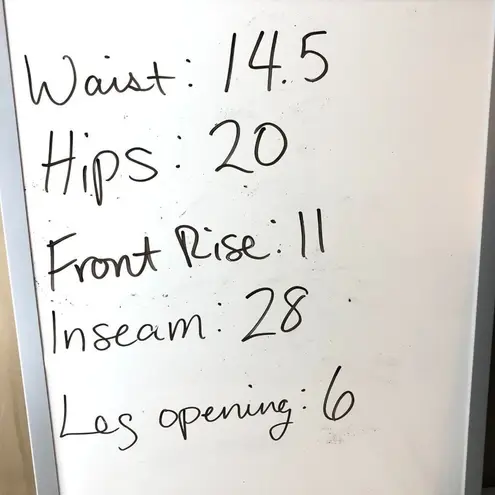 Waist: 14.5
Hips: 20
Front Rise: 11
Inseam: 28
Leg opening: 6